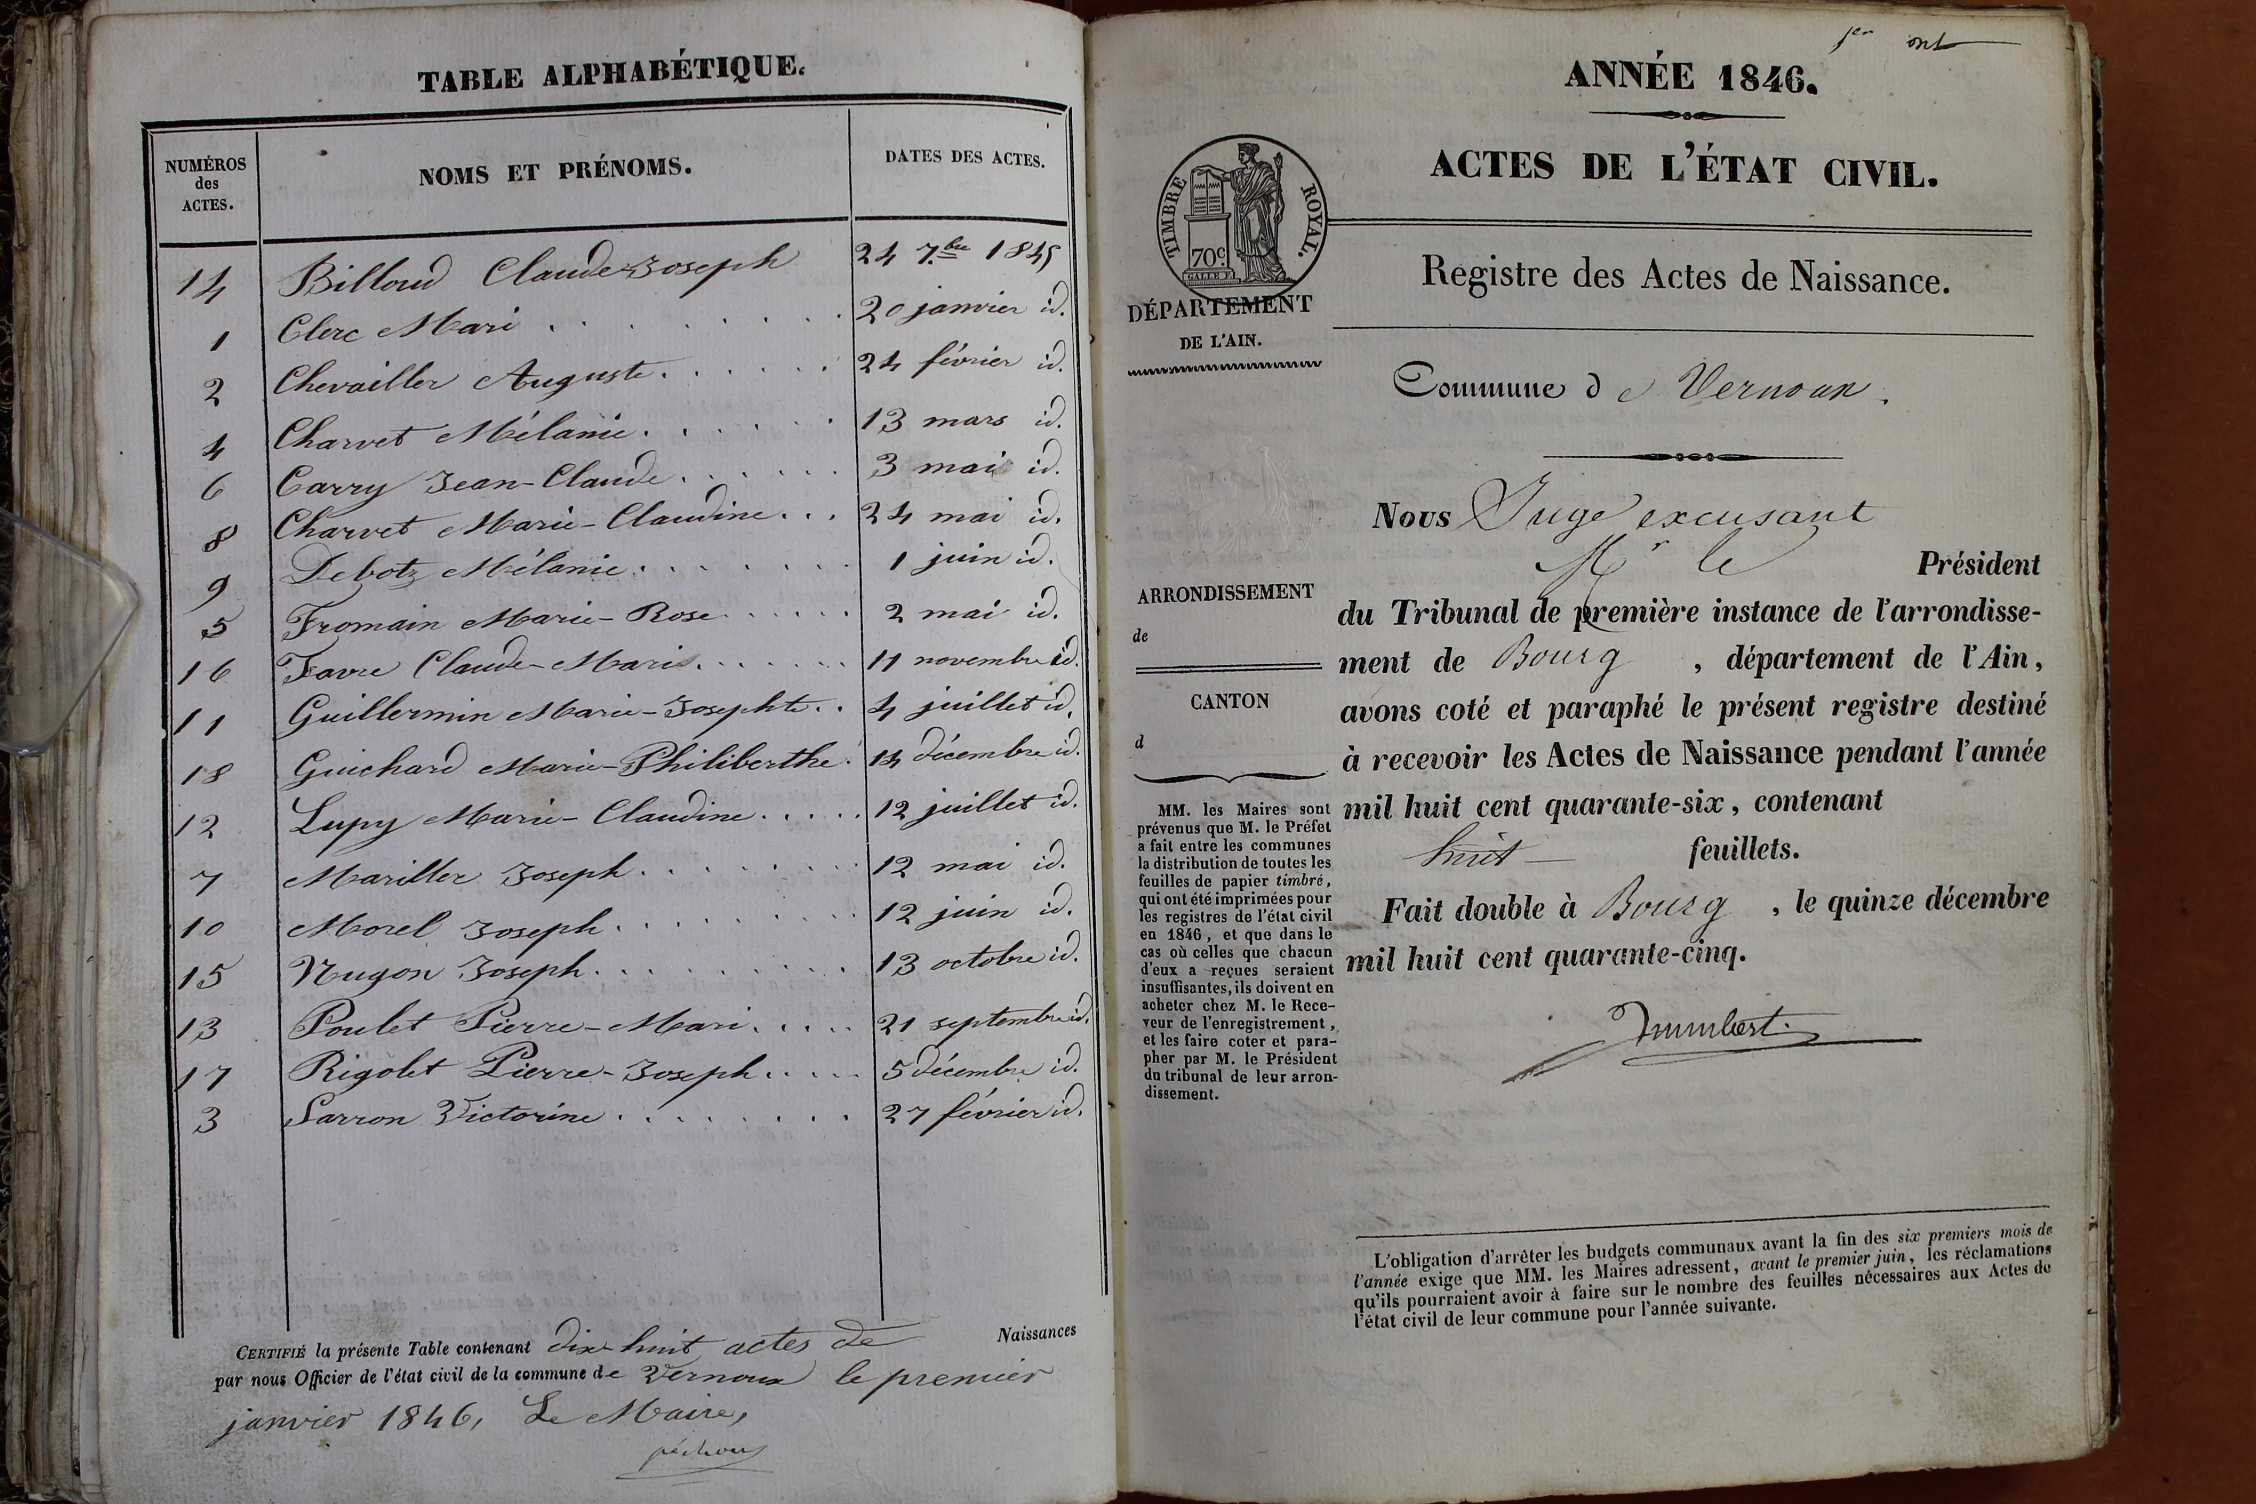 TABLE ALPHABÉTIQUE.
NUMÉROS des ACTES. NOMS ET PRÉNOMS. DATES DES ACTES.
14 Billoud Claude-Joseph 24 7.bre 1845
1 Clerc Mari . . . . . . . 20 janvier id.
2 Chevailler Auguste . . . . . . 24 février id.
4 Charvet Mélanie . . . . . . 13 mars id.
6 Carry Jean-Claude . . . . . . 3 mai id.
8 Charvet Marie-Claudine . . . 24 mai id.
9 Debotz Mélanie . . . . . . . 1 juin id.
5 Fromain Marie-Rose . . . . . . 2 mai id.
16 Favre Claude-Marie . . . . . . . 11 novembre id.
11 Guillermin Marie-Josephte . . 4 juillet id.
18 Guichard Marie-Philiberthe . 14 décembre id.
12 Lupy Marie-Claudine . . . . . 12 juillet id.
7 Mariller Joseph . . . . . . . 12 mai id.
10 Morel Joseph . . . . . . . . 12 juin id.
15 Nugon Joseph . . . . . . . . . 13 octobre id.
13 Poulet Pierre-Mari . . . . . 21 septembre id.
17 Rigolet Pierre-Joseph . . . . . 5 décembre id.
3 Sarron Victorine . . . . . . . . 27 février id.
CERTIFIÉ la présente Table contenant dix-huit actes de Naissances
par nous Officier de l'état civil de la commune de Vernoux le premier
janvier 1846, Le Maire,
1er
ANNÉE 1846.
ACTES DE L'ÉTAT CIVIL.
TIMBRE ROYAL.
70c.
Registre des Actes de Naissance.
DÉPARTEMENT
DE L'AIN.
Commune de Vernoux.
Nous Juge excusant
Mr le Président
du Tribunal de première instance de l'arrondisse-
ment de Bourg , département de l'Ain,
avons coté et paraphé le présent registre destiné
à recevoir les Actes de Naissance pendant l'année
mil huit cent quarante-six, contenant
huit feuillets.
Fait double à Bourg , le quinze décembre
mil huit cent quarante-cinq.
ARRONDISSEMENT
de
CANTON
d
MM. les Maires sont
prévenus que M. le Préfet
a fait entre les communes
la distribution de toutes les
feuilles de papier timbré,
qui ont été imprimées pour
les registres de l'état civil
en 1846, et que dans le
cas où celles que chacun
d'eux a reçues seraient
insuffisantes, ils doivent en
acheter chez M. le Rece-
veur de l'enregistrement,
et les faire coter et para-
pher par M. le Président
du tribunal de leur arron-
dissement.
L'obligation d'arrêter les budgets communaux avant la fin des six premiers mois de
l'année exige que MM. les Maires adressent, avant le premier juin, les réclamations
qu'ils pourraient avoir à faire sur le nombre des feuilles nécessaires aux Actes de
l'état civil de leur commune pour l'année suivante.